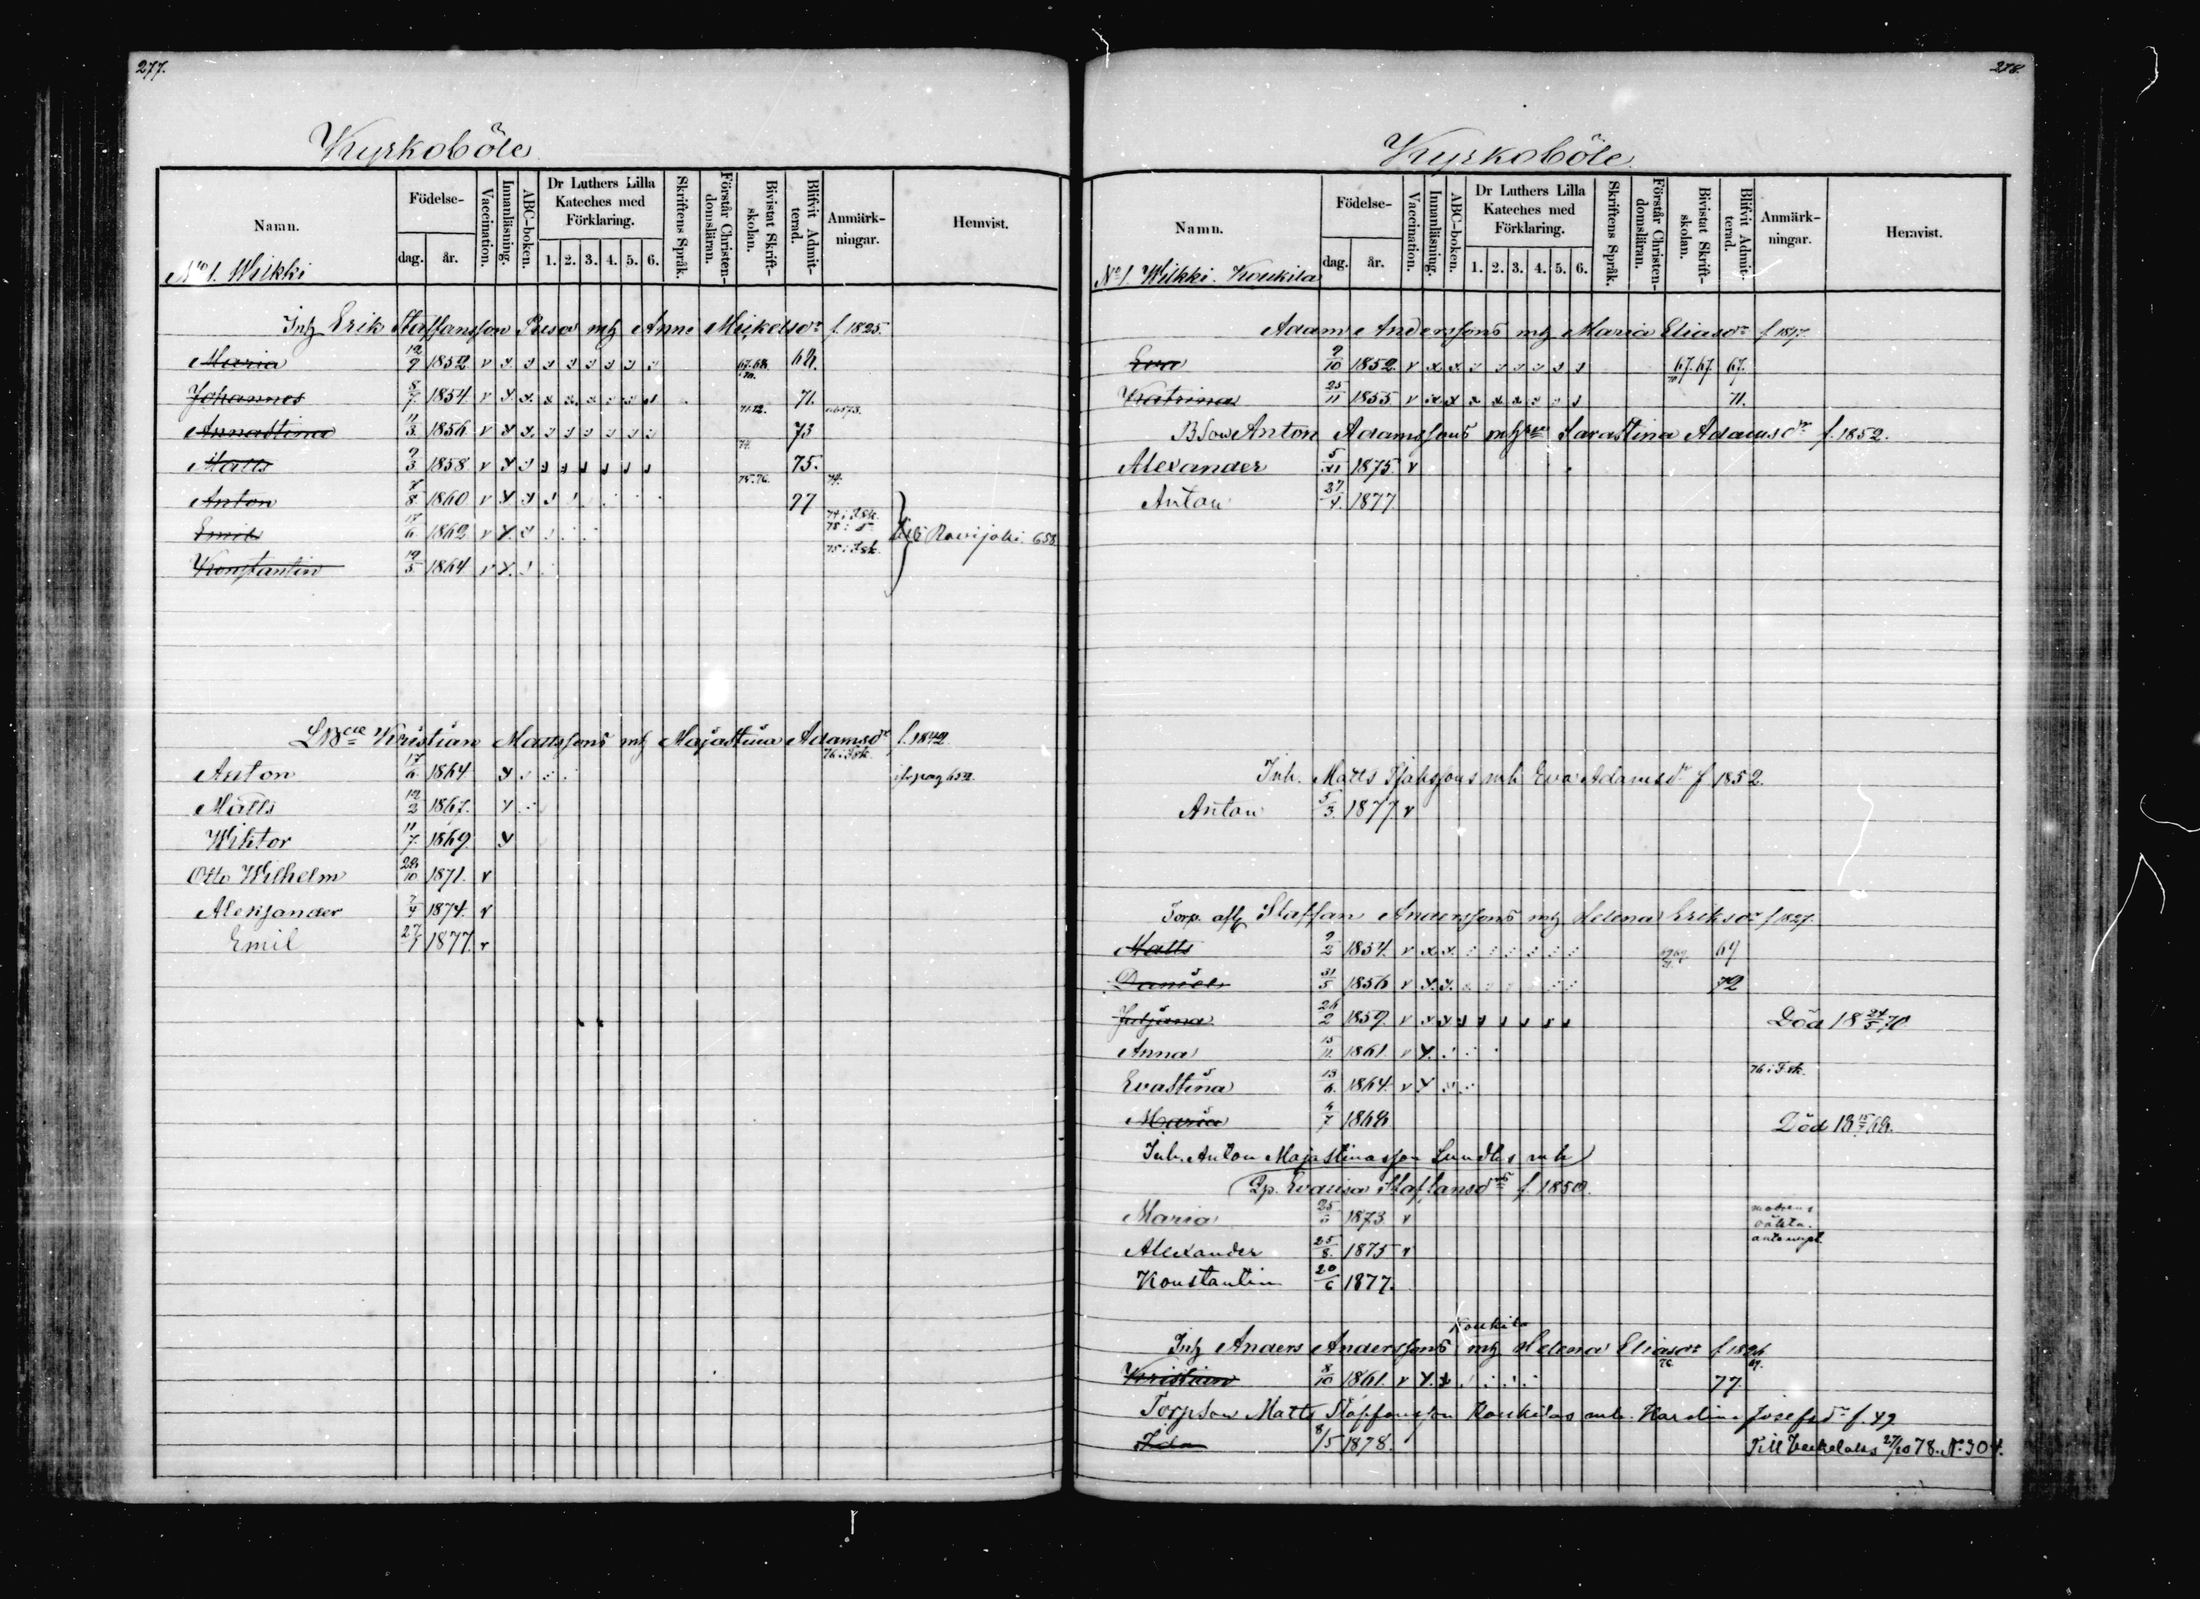 277.
Kyrkoböle
Namn.
Födelse-
dag.
år.
Vaccination.
Innanläsning.
ABC-boken.
Dr Luthers Lilla
Kateches med
Förklaring.
1. 2. 3. 4. 5. 6.
Skriftens Språk.
Förstår Christen-
domsläran.
Bivistat Skrift-
skolan.
Blifvit Admit-
terad.
Anmärk-
ningar.
Hemvist.
No 1. Wilkki
Erik Staffansson mh Anna Mickelsdr f. 1825.
Maria 12/9 1852 v 67.68. 68.
Johannes 8/7 1854 v 71.
Annastina 11/3 1856 v 71.72. 73
Matts 9/3 1858 v 74. 75.
Anton 1860 v 75.76. 74. 77
Emil 17/6 1862 v Ravijoki 658.
Konstantin 19/5 1864 v
Kristian Mattssons mh Majastina Adamsdr f. 1842
Anton 17/6 1864 pag 652
Matts 12/2 1867.
Wiktor 11/7 1869
Otto Wilhelm 28/10 1871. v
Alexsander 7/4 1874. v
Emil 27/1 1877. v
278.
Kyrkoböle
Namn.
Födelse-
dag.
år.
Vaccination.
Innanläsning.
ABC-boken.
Dr Luthers Lilla
Kateches med
Förklaring.
1. 2. 3. 4. 5. 6.
Skriftens Språk.
Förstår Christen-
domsläran.
Bivistat Skrift-
skolan.
Blifvit Admit-
terad.
Anmärk-
ningar.
Hemvist.
No 1. Wilkki. Koukila
Adam Anderssons mh Maria Eliasdr f. 1817.
Eva 9/10 1852. v 67.67. 67.
Katrina 25/11 1855 v 71.
Anton Adamssons Sarastina Adamsdr f. 1852.
Alexander 5/11 1875 v
Anton 27/4 1877
Inh. Matts mh Eva Adamsdr f 1852
Anton 5/3 1877 v
Torp. Staffan Anderssons mh Helena Eriksdr f 1827.
Matts 9/2 1854 v 69
Daniel 31/5 1856 v 72
Juljana 26/2 1859. v Död 18 24/5 70
Anna 15/11 1861. v
Evastina 13/6 1864 v
Maria 4/7 1868 Död 18 15/7 68.
Inh. Anton Majastinasson Lundh mh
Evalisa Staffansdr f. 1850.
Maria 1873. v
Alexander 25/8 1875 v
Konstantin 20/6 1877.
Koukila
Anders Anderssons mh Helena Eliasdr
Kristian 8/10 1861. v 77.
Torpson Matts Staffansson Koukilas mh. Karolina Josefsdr f. 49
Ida 8/5 1878. Till Vekelaks 27/10 78. No 304.